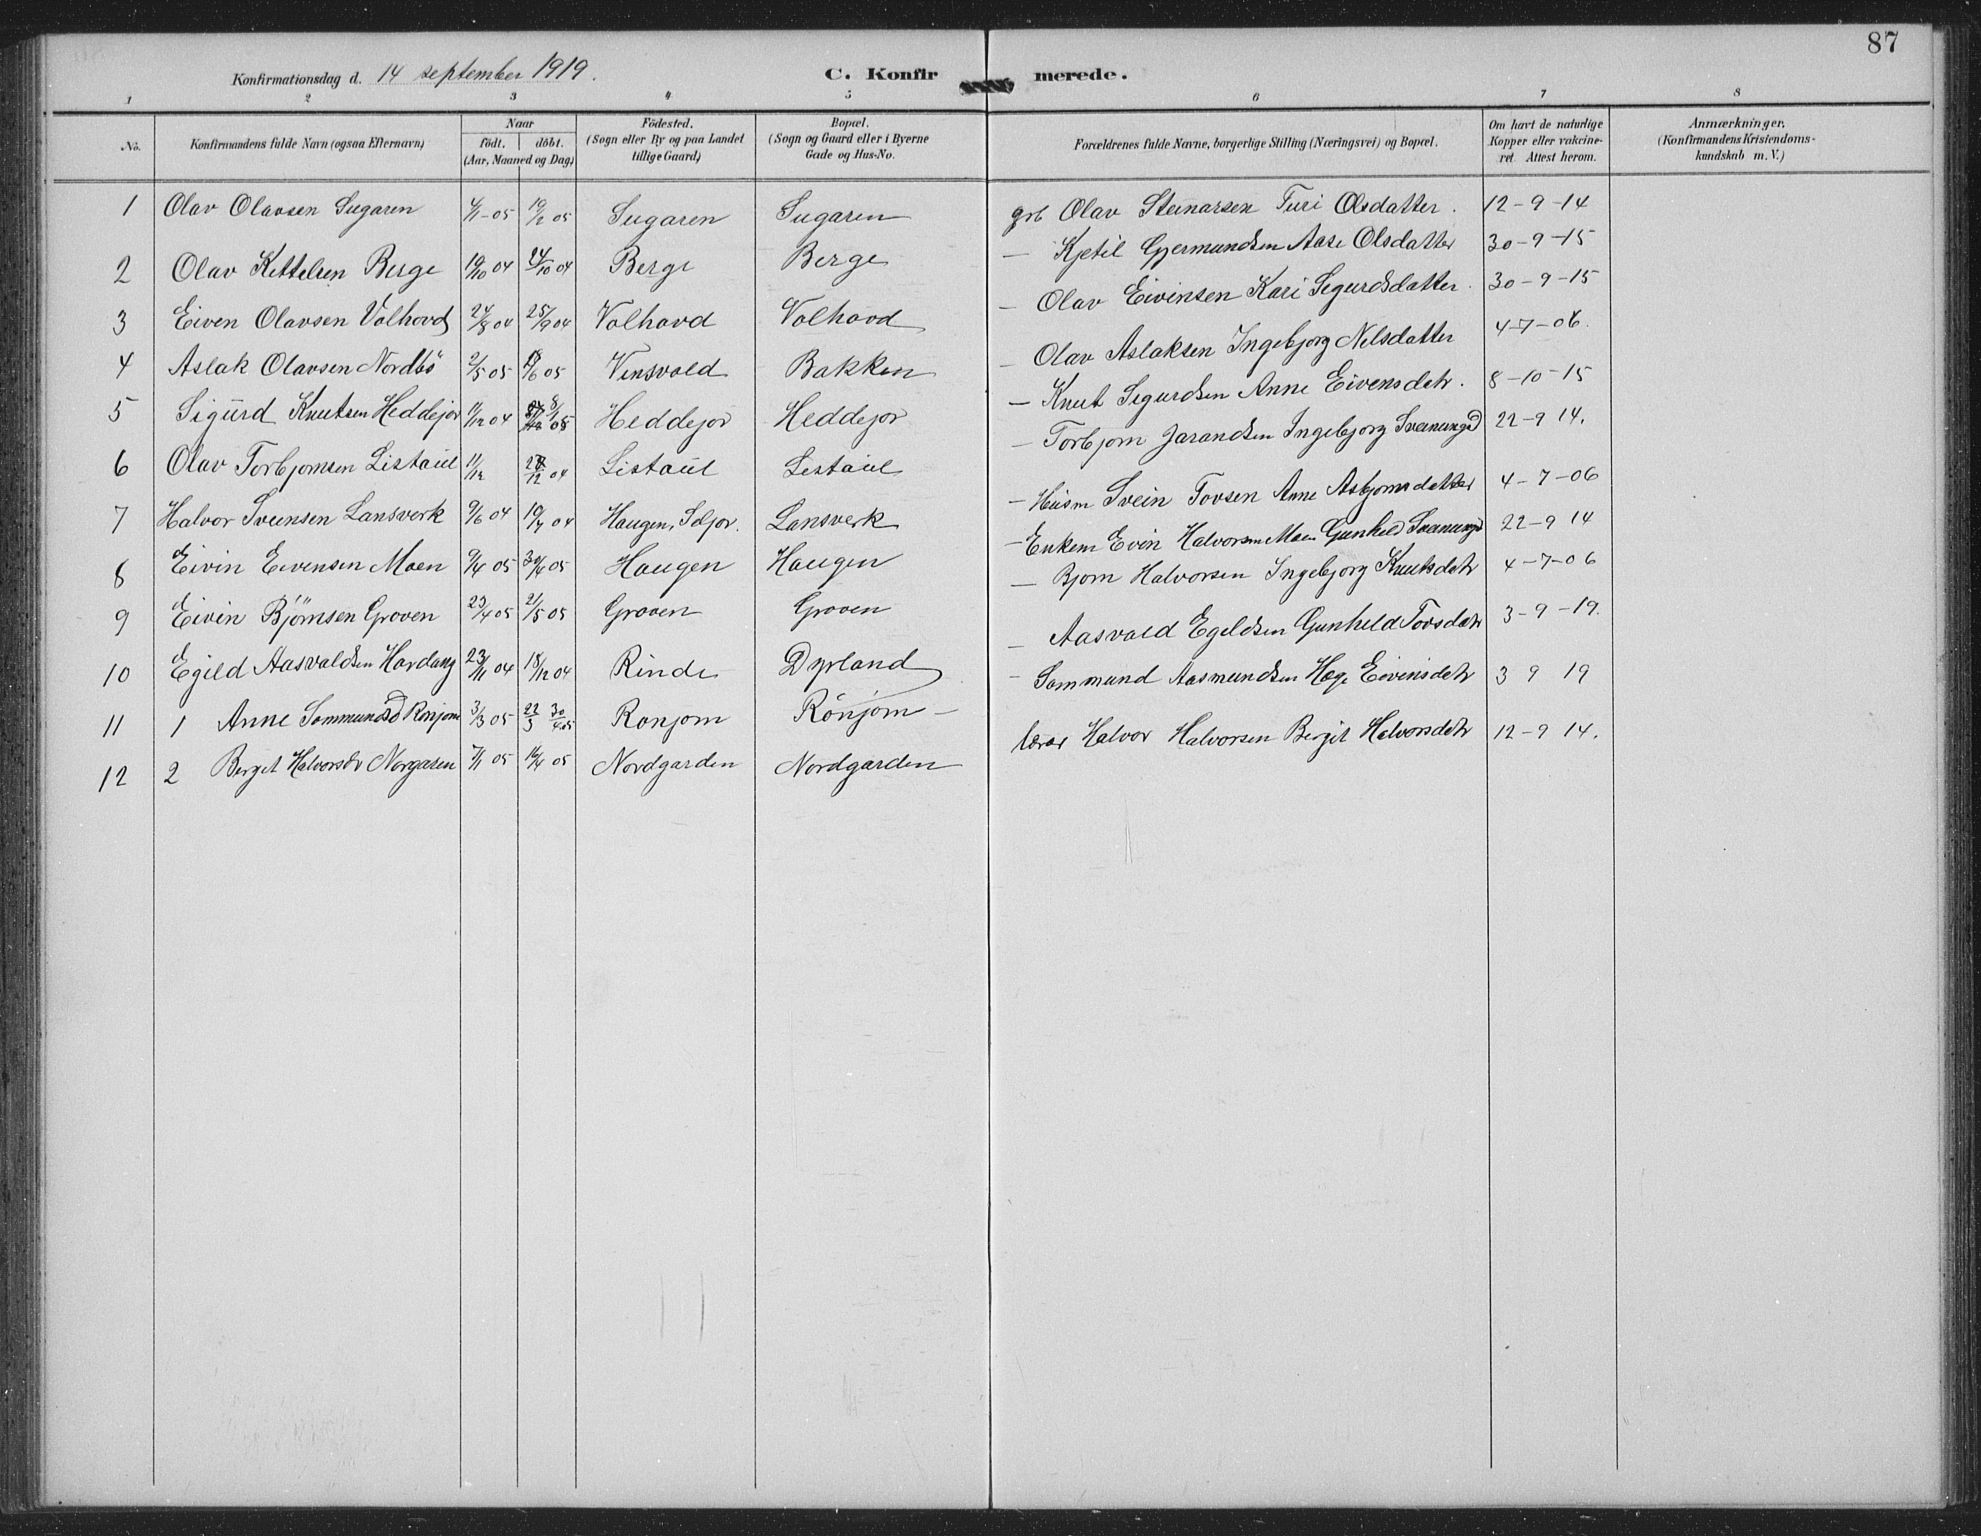 87
Konfirmationsdag d. 14 september 1919.
C. Konfirmerede.
1 2 3 4 5 6 7 8
No.
Konfirmandens fulde Navn (ogsaa Efternavn)
Naar
födt. döbt.
(Aar, Maaned og Dag)
Födested.
(Sogn eller By og paa Landet
tillige Gaard)
Bopæl.
(Sogn og Gaard eller i Byerne
Gade og Hus-No.
Forældrenes fulde Navne, borgerlige Stilling (Næringsvei) og Bopæl.
Om havt de naturlige
Kopper eller vakcine-
ret. Attest herom.
Anmærkninger.
(Konfirmandens Kristendoms-
kundskab m. V.)
1 Olav Olavsen Sugaren 4/1-05 19/2 05 Sugaren Sugaren grb Olav Steinarsen Turi Olsdatter. 12-9-14
2 Olav Kettelsen Berge 19/10 04 24/10 04 Berge Berge — Kjetil Gjermundsen Aase Olsdatter 30-9-15
3 Eiven Olavsen Valhovd 24/8 04 25/9 04 Valhovd Valhovd — Olav Eivinsen Kari Segurdsdatter. 30-9-15
4 Aslak Olavsen Nordbö 2/5 05 18/6 05 Vinsvald Bakken — Olav Aslaksen Ingebjorg Nilsdatter 4-7-06.
5 Sigurd Knutsen Heddejor 11/12 04 8/1 05 Heddejor Heddejor — Knut Segurdsen Anne Eivensdtr. 8-10-15
6 Olav Torbjornsen Listaul 11/12 04 Listaul Listaul — Torbjorn Jarandsen Ingebjorg Sveinungsd 22-9 14.
7 Halvor Sveinsen Lansverk 9/6 04 10/7 04 Haugen, Seljor. Lansverk — Husm Svein Tovsen Anne Asbjornsdatter 4-7-06
8 Eivin Eivensen Moen 9/4 05 30/4 05 Haugen Haugen — Enkem Evin Halvorsen Moen Gunhild Sveinungsd 22-9 14
9 Eivin Bjørnsen Groven 23/4 05 21/5 05 Groven Groven — Bjorn Halvorsen Ingebjorg Knutsdtr 4-7-06
10 Egild Aasvaldsen Hardang 23/11 04 18/12 04 Rinde Dyrland — Aasvald Egeldsen Gunheld Tovsdtr 3-9-19.
11 1 Anne Sommundsd Ronjom 3/3 05 22/3 30/4 05 Ronjom Rönjom — Sommund Aasmundsen Hæge Eivinsdtr 3 9 19
12 2 Berget Halvorsdr Norgaren 7/1 05 16/4 05 Nordgarden Nordgarden lærer Halvor Halvorsen Bergit Halvorsdtr 12-9 14.